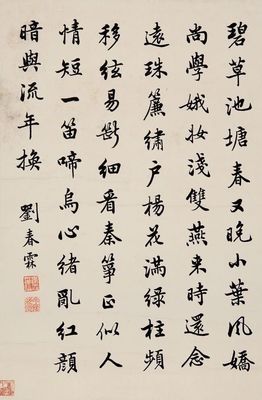 碧草池塘春又晚小葉風嬌
尚學娥妝淺雙燕来時還念
遠珠簾繡户楊花滿綠柱頻
移弦易斷細看秦箏正似人
情短一笛啼烏心緒亂紅顔
暗與流年換
劉春霖